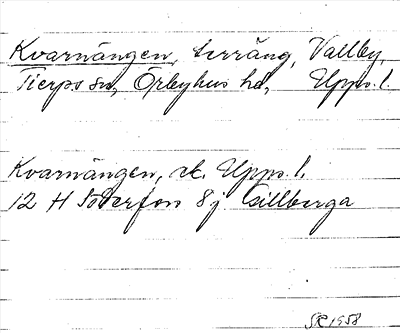 Kvarnängen, terräng, Vallby,
Tierps sn, Örbyhus hd, Upps. l.
Kvarnängen, ek. Upps. l.
12 H Söderfors 8 j Gillberga
SR 1958